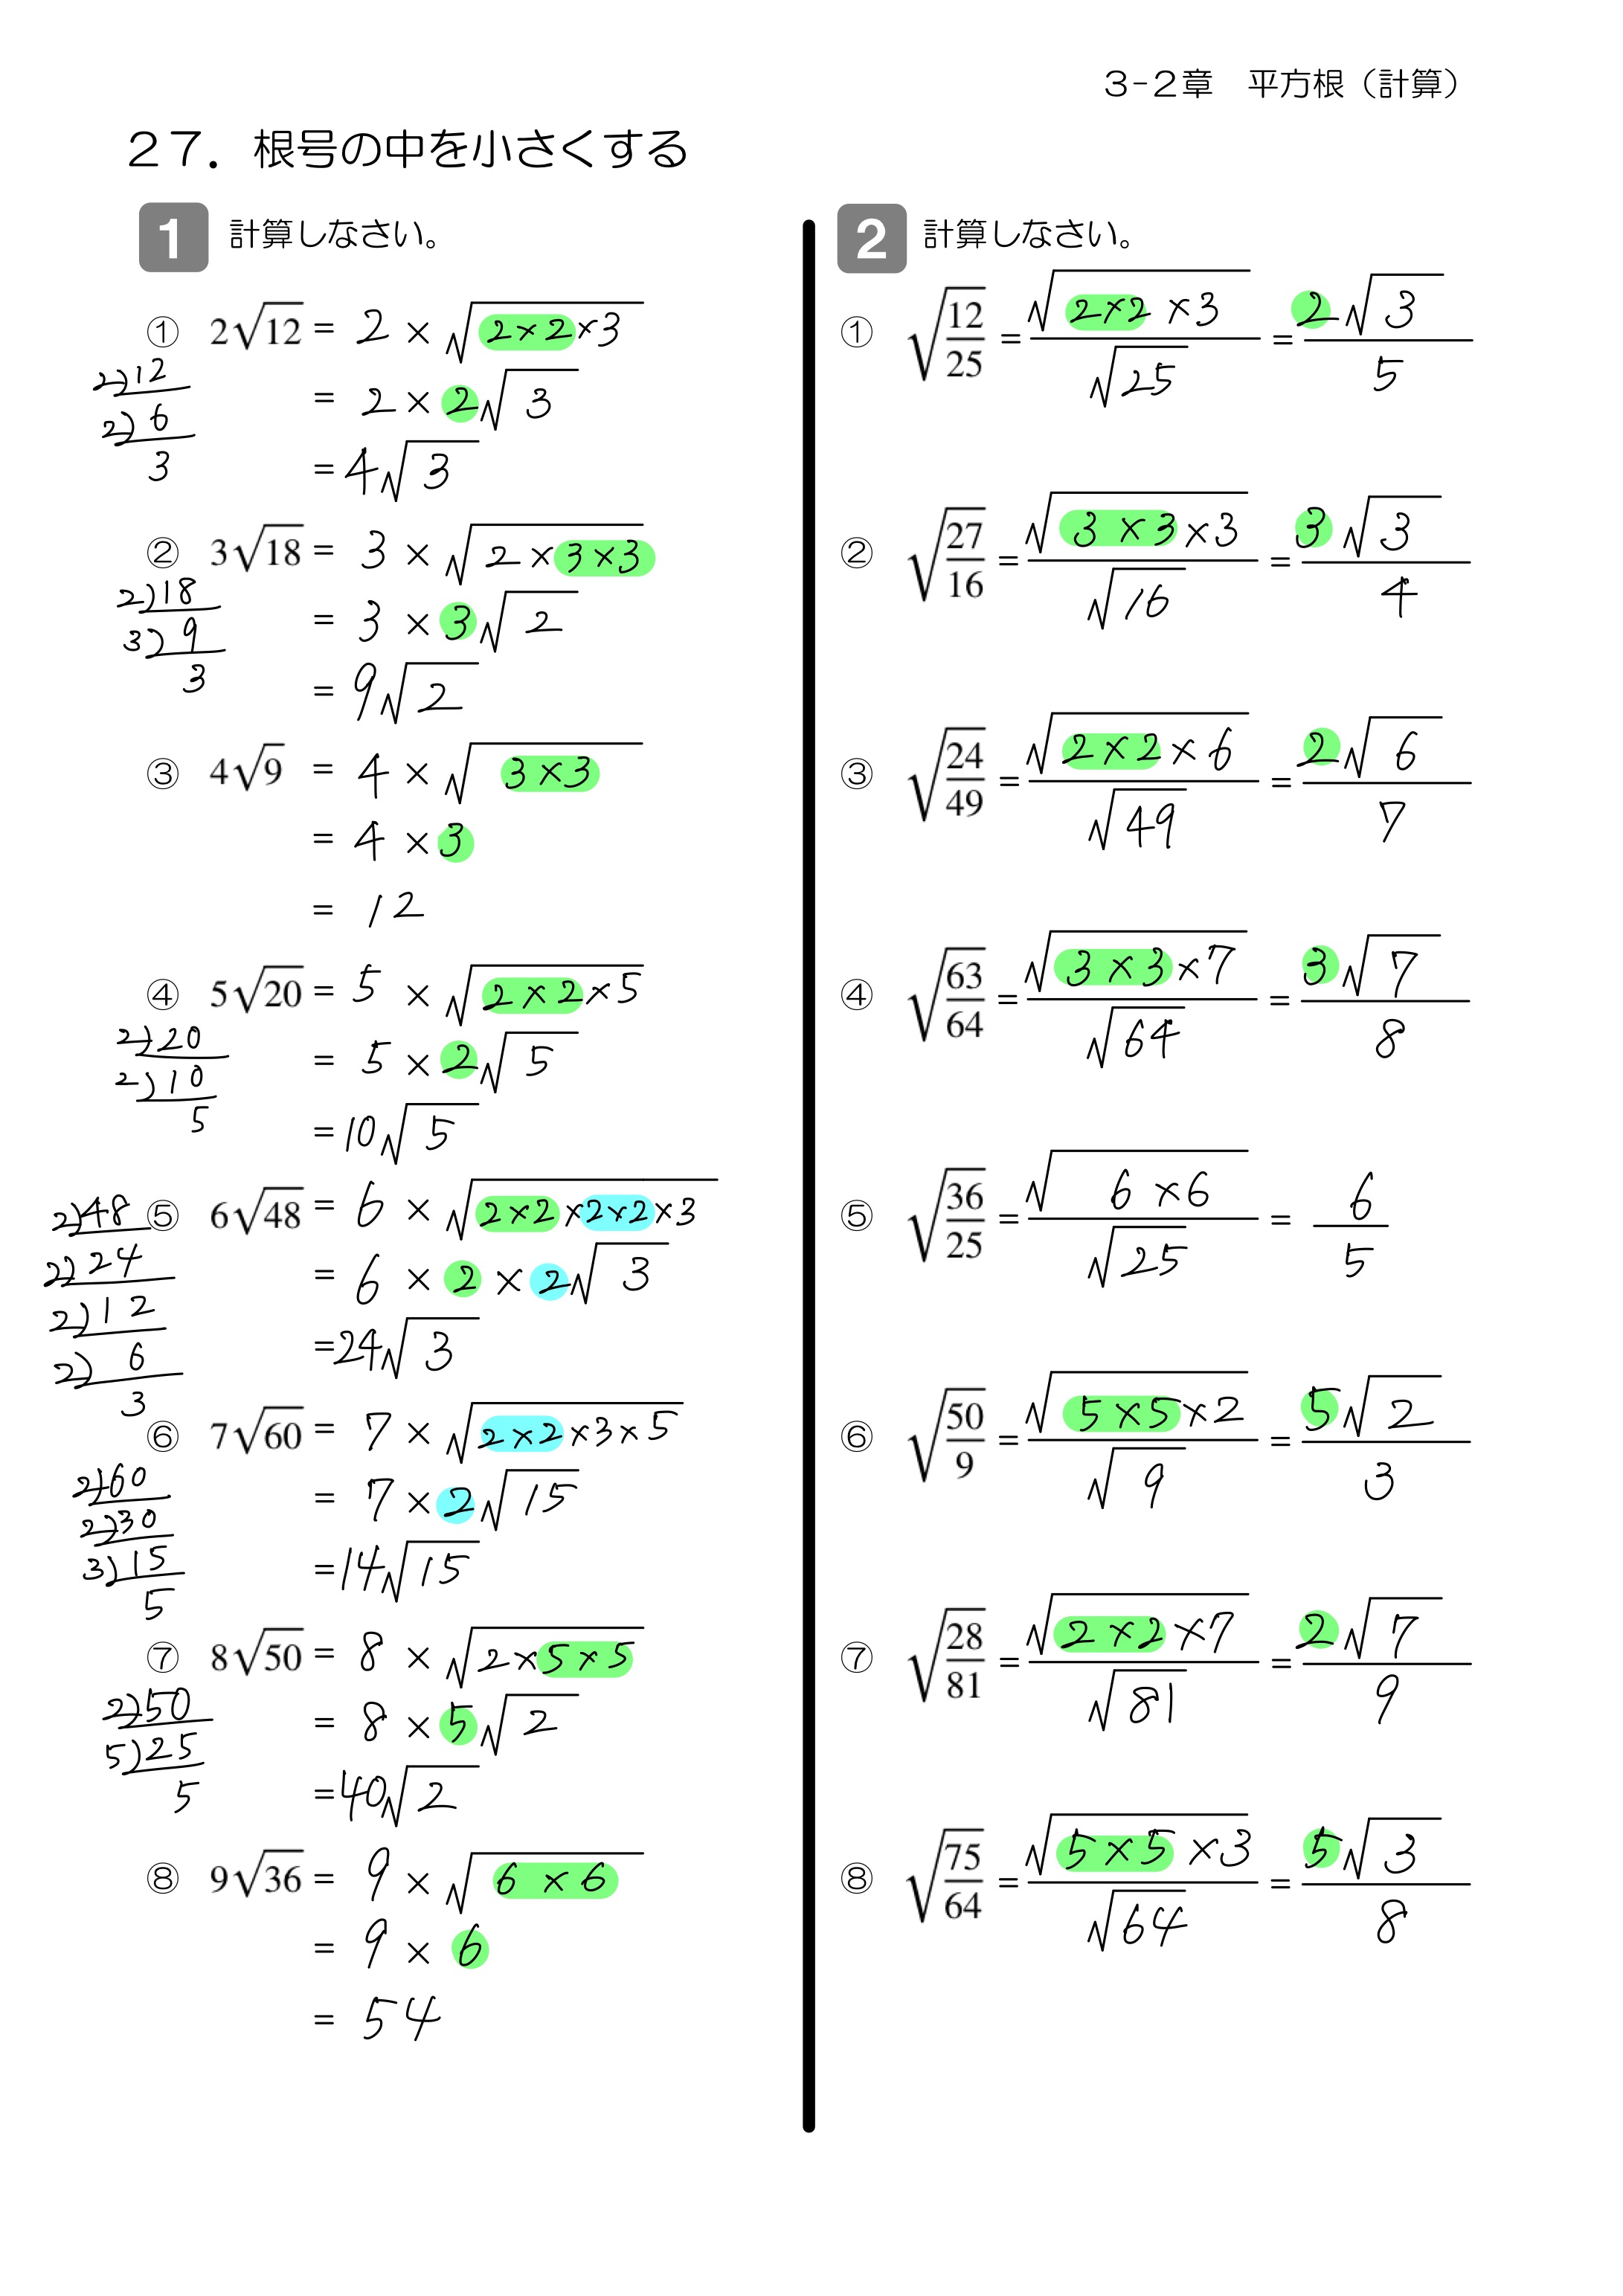 3-2章　平方根（計算）
２７．根号の中を小さくする
1 計算しなさい。
① 2√12 = 2 × √(2×2×3)
= 2 × 2√3
= 4√3
2)12
2)6
3
② 3√18 = 3 × √(2×3×3)
= 3 × 3√2
= 9√2
2)18
3)9
3
③ 4√9 = 4 × √(3×3)
= 4 × 3
= 12
④ 5√20 = 5 × √(2×2×5)
= 5 × 2√5
= 10√5
2)20
2)10
5
⑤ 6√48 = 6 × √(2×2×2×2×3)
= 6 × 2 × 2√3
= 24√3
2)48
2)24
2)12
2)6
3
⑥ 7√60 = 7 × √(2×2×3×5)
= 7 × 2√15
= 14√15
2)60
2)30
3)15
5
⑦ 8√50 = 8 × √(2×5×5)
= 8 × 5√2
= 40√2
2)50
5)25
5
⑧ 9√36 = 9 × √(6×6)
= 9 × 6
= 54
2 計算しなさい。
① √(12/25) = √(2×2×3)/√25 = 2√3/5
② √(27/16) = √(3×3×3)/√16 = 3√3/4
③ √(24/49) = √(2×2×6)/√49 = 2√6/7
④ √(63/64) = √(3×3×7)/√64 = 3√7/8
⑤ √(36/25) = √(6×6)/√25 = 6/5
⑥ √(50/9) = √(5×5×2)/√9 = 5√2/3
⑦ √(28/81) = √(2×2×7)/√81 = 2√7/9
⑧ √(75/64) = √(5×5×3)/√64 = 5√3/8